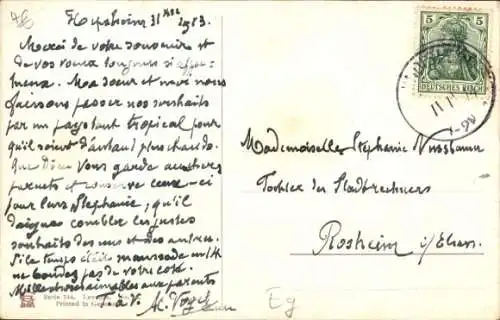 31 1913.
Merci de votre souvenir et
de vos voeux toujours si affec-
tueux. Ma soeur et moi nous
faisons passer nos souhaits
par un pays tout tropical pour
qu'il soient d'autant plus chauds.
Que Dieu Vous garde aux chers
parents et conserve ceux-ci
pour leur Stéphanie, qu'il
daigne combler les justes
souhaits des uns et des autres.
Si le temps était maussade
ne boudez pas de votre côté.
Mille choses aimables aux parents
à V. M. Vogel
Serie 744.
Printed in Germany
Eg
5 5
DEUTSCHES REICH
Mademoiselle Stéphanie Nussbaum
Tochter des Stadtrechners
Rosheim i/Elsass.